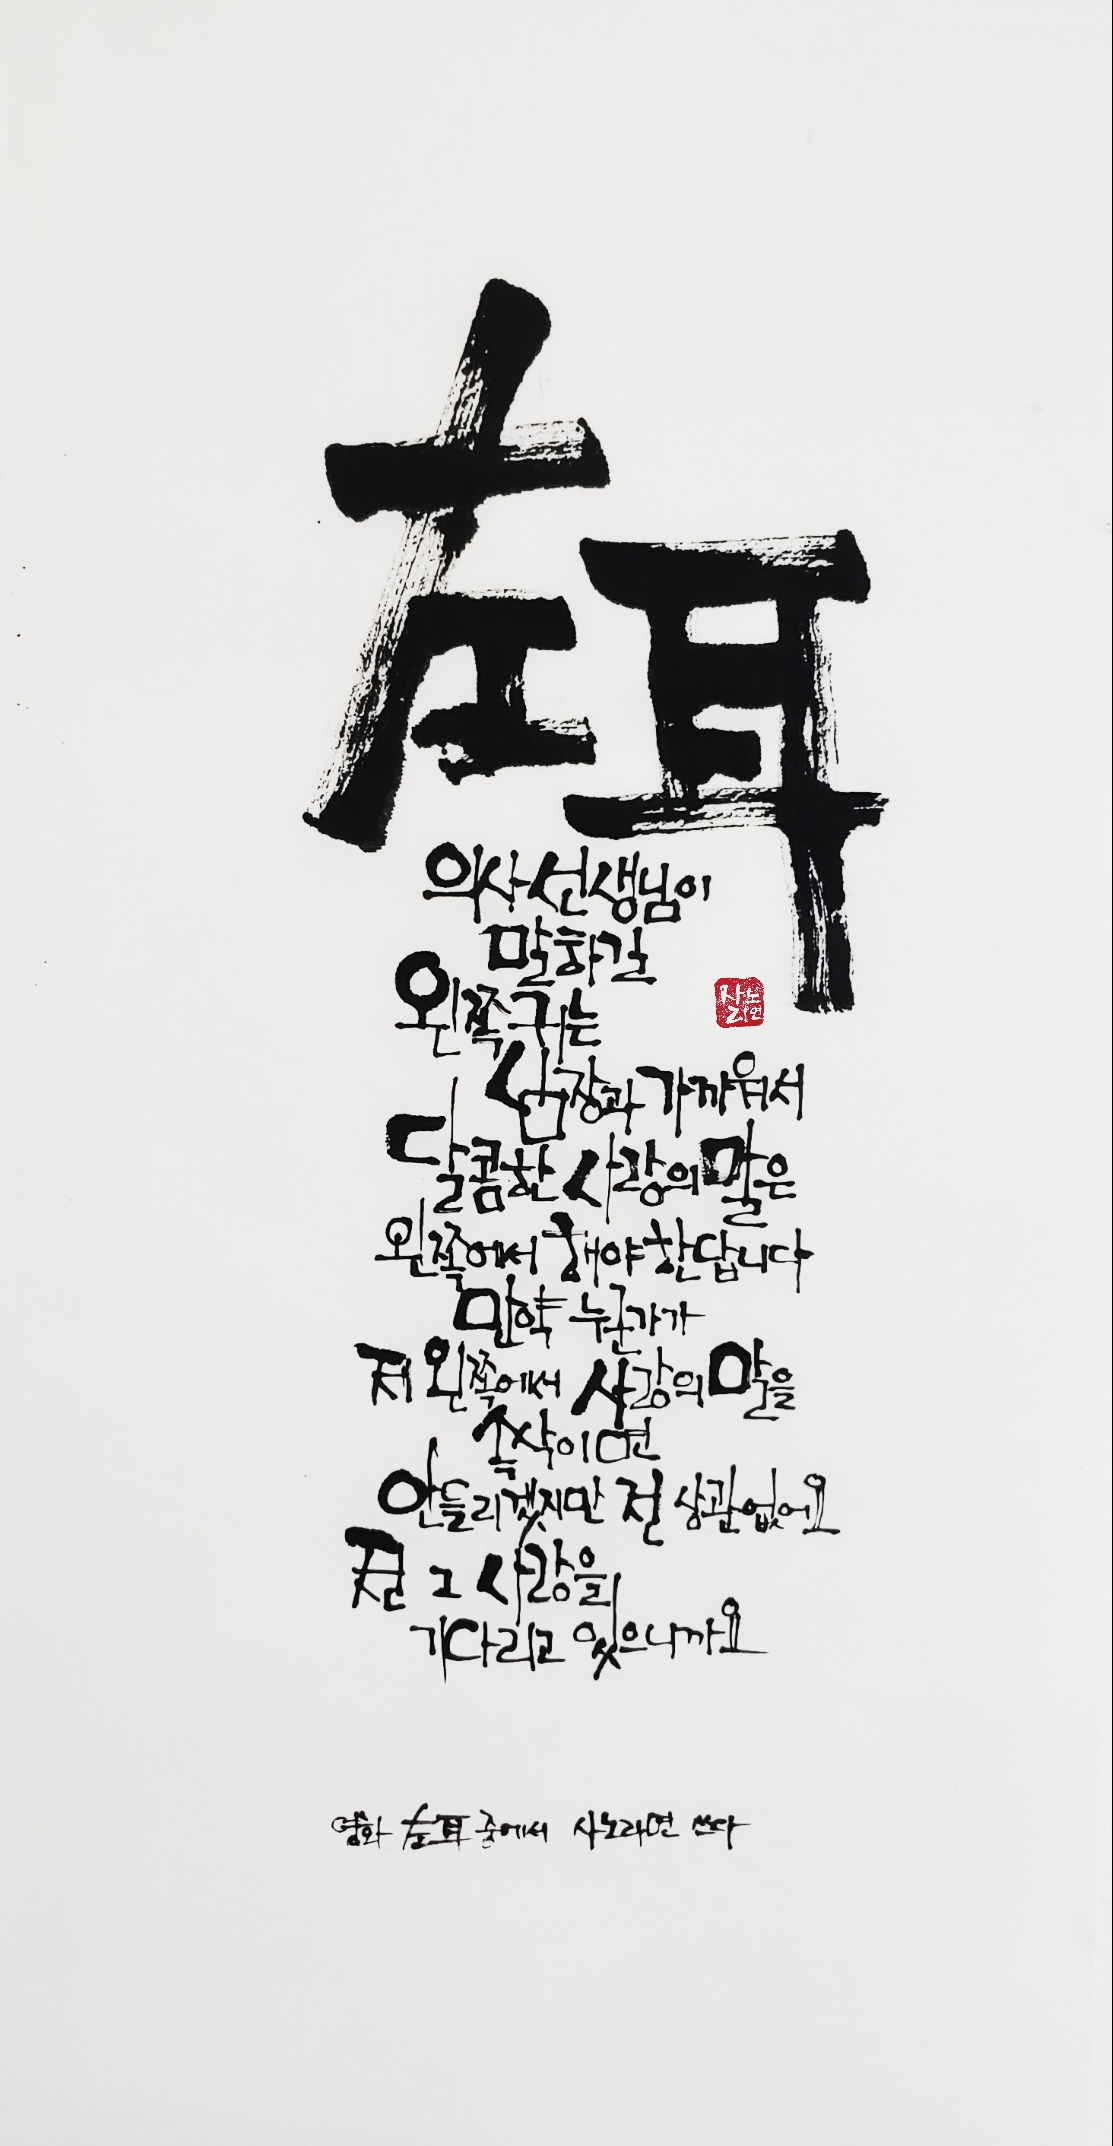 左耳
의사선생님이
말하길
왼쪽 귀는
심장과 가까워서
달콤한 사랑의 말은
왼쪽에서 해야 한답니다
만약 누군가가
저 왼쪽에서 사랑의 말을
속삭이면
안들리겠지만 전 상관없어요
전 그 사랑을
기다리고 있으니까요
사노
라연
영화 左耳 중에서 사노라면 쓰다